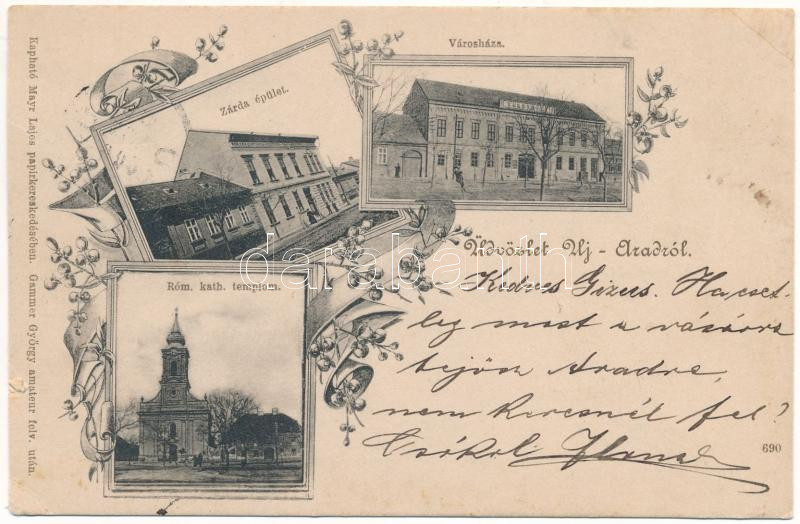 Kapható Mayr Lajos papirkereskedésében. Gammer György amateur felv. után.
Zárda épület.
Városháza.
Róm. kath. templom.
Üdvözlet Uj - Aradról.
darabanth
Kedves Gizus. Ha, eset-
leg most a vásárra
bejösz Aradra,
nem keresnél fel?
Csókol Ilona
690